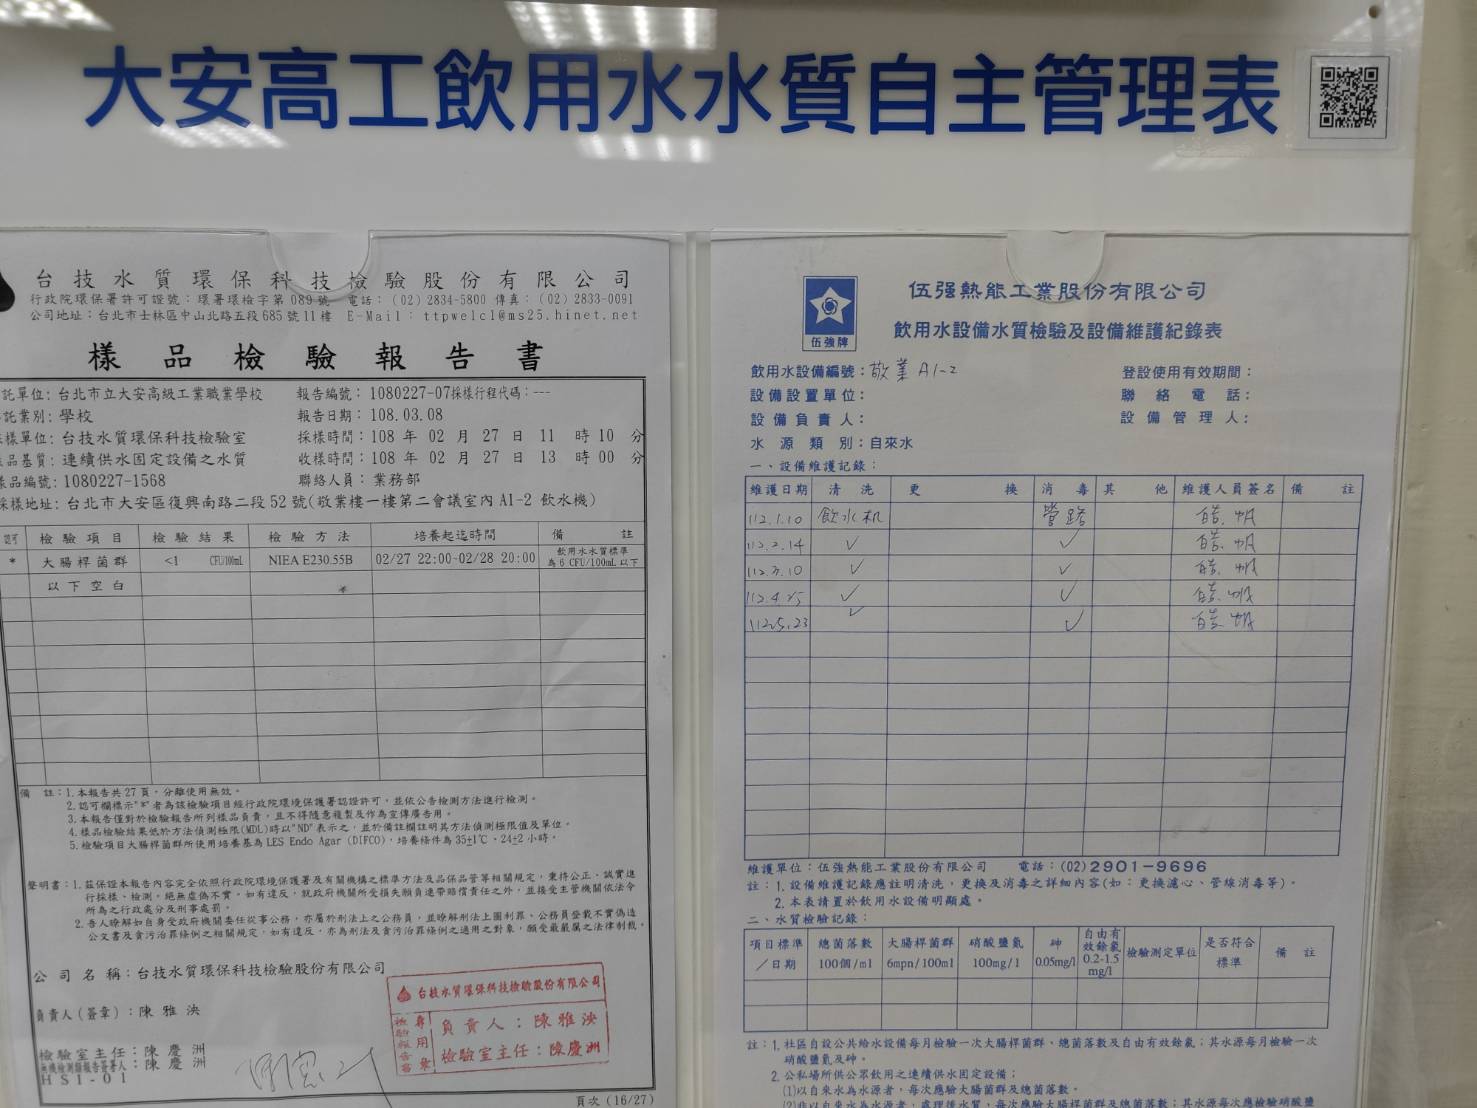 大安高工飲用水水質自主管理表
台技水質環保科技檢驗股份有限公司
行政院環保署許可證號：環署環檢字第 089 號 電話：(02) 2834-5800 傳真：(02) 2833-0091
公司地址：台北市士林區中山北路五段 685 號 11 樓 E-Mail：ttpwelcl@ms25.hinet.net
樣品檢驗報告書
託單位：台北市立大安高級工業職業學校 報告編號：1080227-07採樣行程代碼：---
託業別：學校 報告日期：108.03.08
樣單位：台技水質環保科技檢驗室 採樣時間：108 年 02 月 27 日 11 時 10 分
品基質：連續供水固定設備之水質 收樣時間：108 年 02 月 27 日 13 時 00 分
樣品編號：1080227-1568 聯絡人員：業務部
採樣地址：台北市大安區復興南路二段 52 號(敬業樓一樓第二會議室內 A1-2 飲水機)
認可 檢驗項目 檢驗結果 檢驗方法 培養起迄時間 備註
* 大腸桿菌群 <1 CFU/100mL NIEA E230.55B 02/27 22:00~02/28 20:00 飲用水水質標準
為 6 CFU/100mL 以下
以下空白
備 註：1.本報告共 27 頁，分離使用無效。
2.認可欄標示"*"者為該檢驗項目經行政院環境保護署認證許可，並依公告檢測方法進行檢測。
3.本報告僅對於檢驗報告所列樣品負責，且不得隨意複製及作為宣傳廣告用。
4.樣品檢驗結果低於方法偵測極限(MDL)時以"ND"表示之，並於備註欄註明其方法偵測極限值及單位。
5.檢驗項目大腸桿菌群所使用培養基為 LES Endo Agar (DIFCO)，培養條件為 35±1℃、24±2 小時。
聲明書：1.茲保證本報告內容完全依照行政院環境保護署及有關機構之標準方法及品保品管等相關規定，秉持公正、誠實進
行採樣、檢測。絕無虛偽不實，如有違反，就政府機關所受損失願負連帶賠償責任之外，並接受主管機關依法令
所為之行政處分及刑事處罰。
2.吾人瞭解如自身受政府機關委任從事公務，亦屬於刑法上之公務員，並瞭解刑法上圖利罪、公務員登載不實偽造
公文書及貪污治罪條例之相關規定，如有違反，亦為刑法及貪污治罪條例之適用之對象，願受最嚴厲之法律制裁。
公司名稱：台技水質環保科技檢驗股份有限公司
負責人(簽章)：陳雅泱
檢驗室主任：陳慶洲
無機檢測類報告簽署人：陳慶洲
HSI-01
台技水質環保科技檢驗股份有限公司
檢驗報告專用章
負責人：陳雅泱
檢驗室主任：陳慶洲
頁次 (16/27)
伍強牌
伍强熱能工業股份有限公司
飲用水設備水質檢驗及設備維護紀錄表
飲用水設備編號：敬業 A1-2 登設使用有效期間：
設備設置單位： 聯絡電話：
設備負責人： 設備管理人：
水源類別：自來水
一、設備維護記錄：
維護日期 清洗 更換 消毒 其他 維護人員簽名 備註
112.1.10 飲水机 管路
112.2.14 ✓ ✓
112.3.10 ✓ ✓
112.4.25 ✓ ✓
112.5.23 ✓ ✓
維護單位：伍強熱能工業股份有限公司 電話：(02)2901-9696
註：1.設備維護記錄應註明清洗，更換及消毒之詳細內容(如：更換濾心、管線消毒等)。
2.本表請置於飲用水設備明顯處。
二、水質檢驗記錄：
項目標準／日期 總菌落數 100個/ml 大腸桿菌群 6mpn/100ml 硝酸鹽氮 100mg/l 砷 0.05mg/l 自由有效餘氯 0.2-1.5 mg/l 檢驗測定單位 是否符合標準 備註
註：1.社區自設公共給水設備每月檢驗一次大腸桿菌群、總菌落數及自由有效餘氯；其水源每月檢驗一次
硝酸鹽氮及砷。
2.公私場所供公眾飲用之連續供水固定設備：
(1)以自來水為水源者，每次應驗大腸菌群及總菌落數。
(2)非以自來水為水源者，處理後水質，每次應驗大腸桿菌群及總菌落數；其水源每次應檢驗硝酸鹽